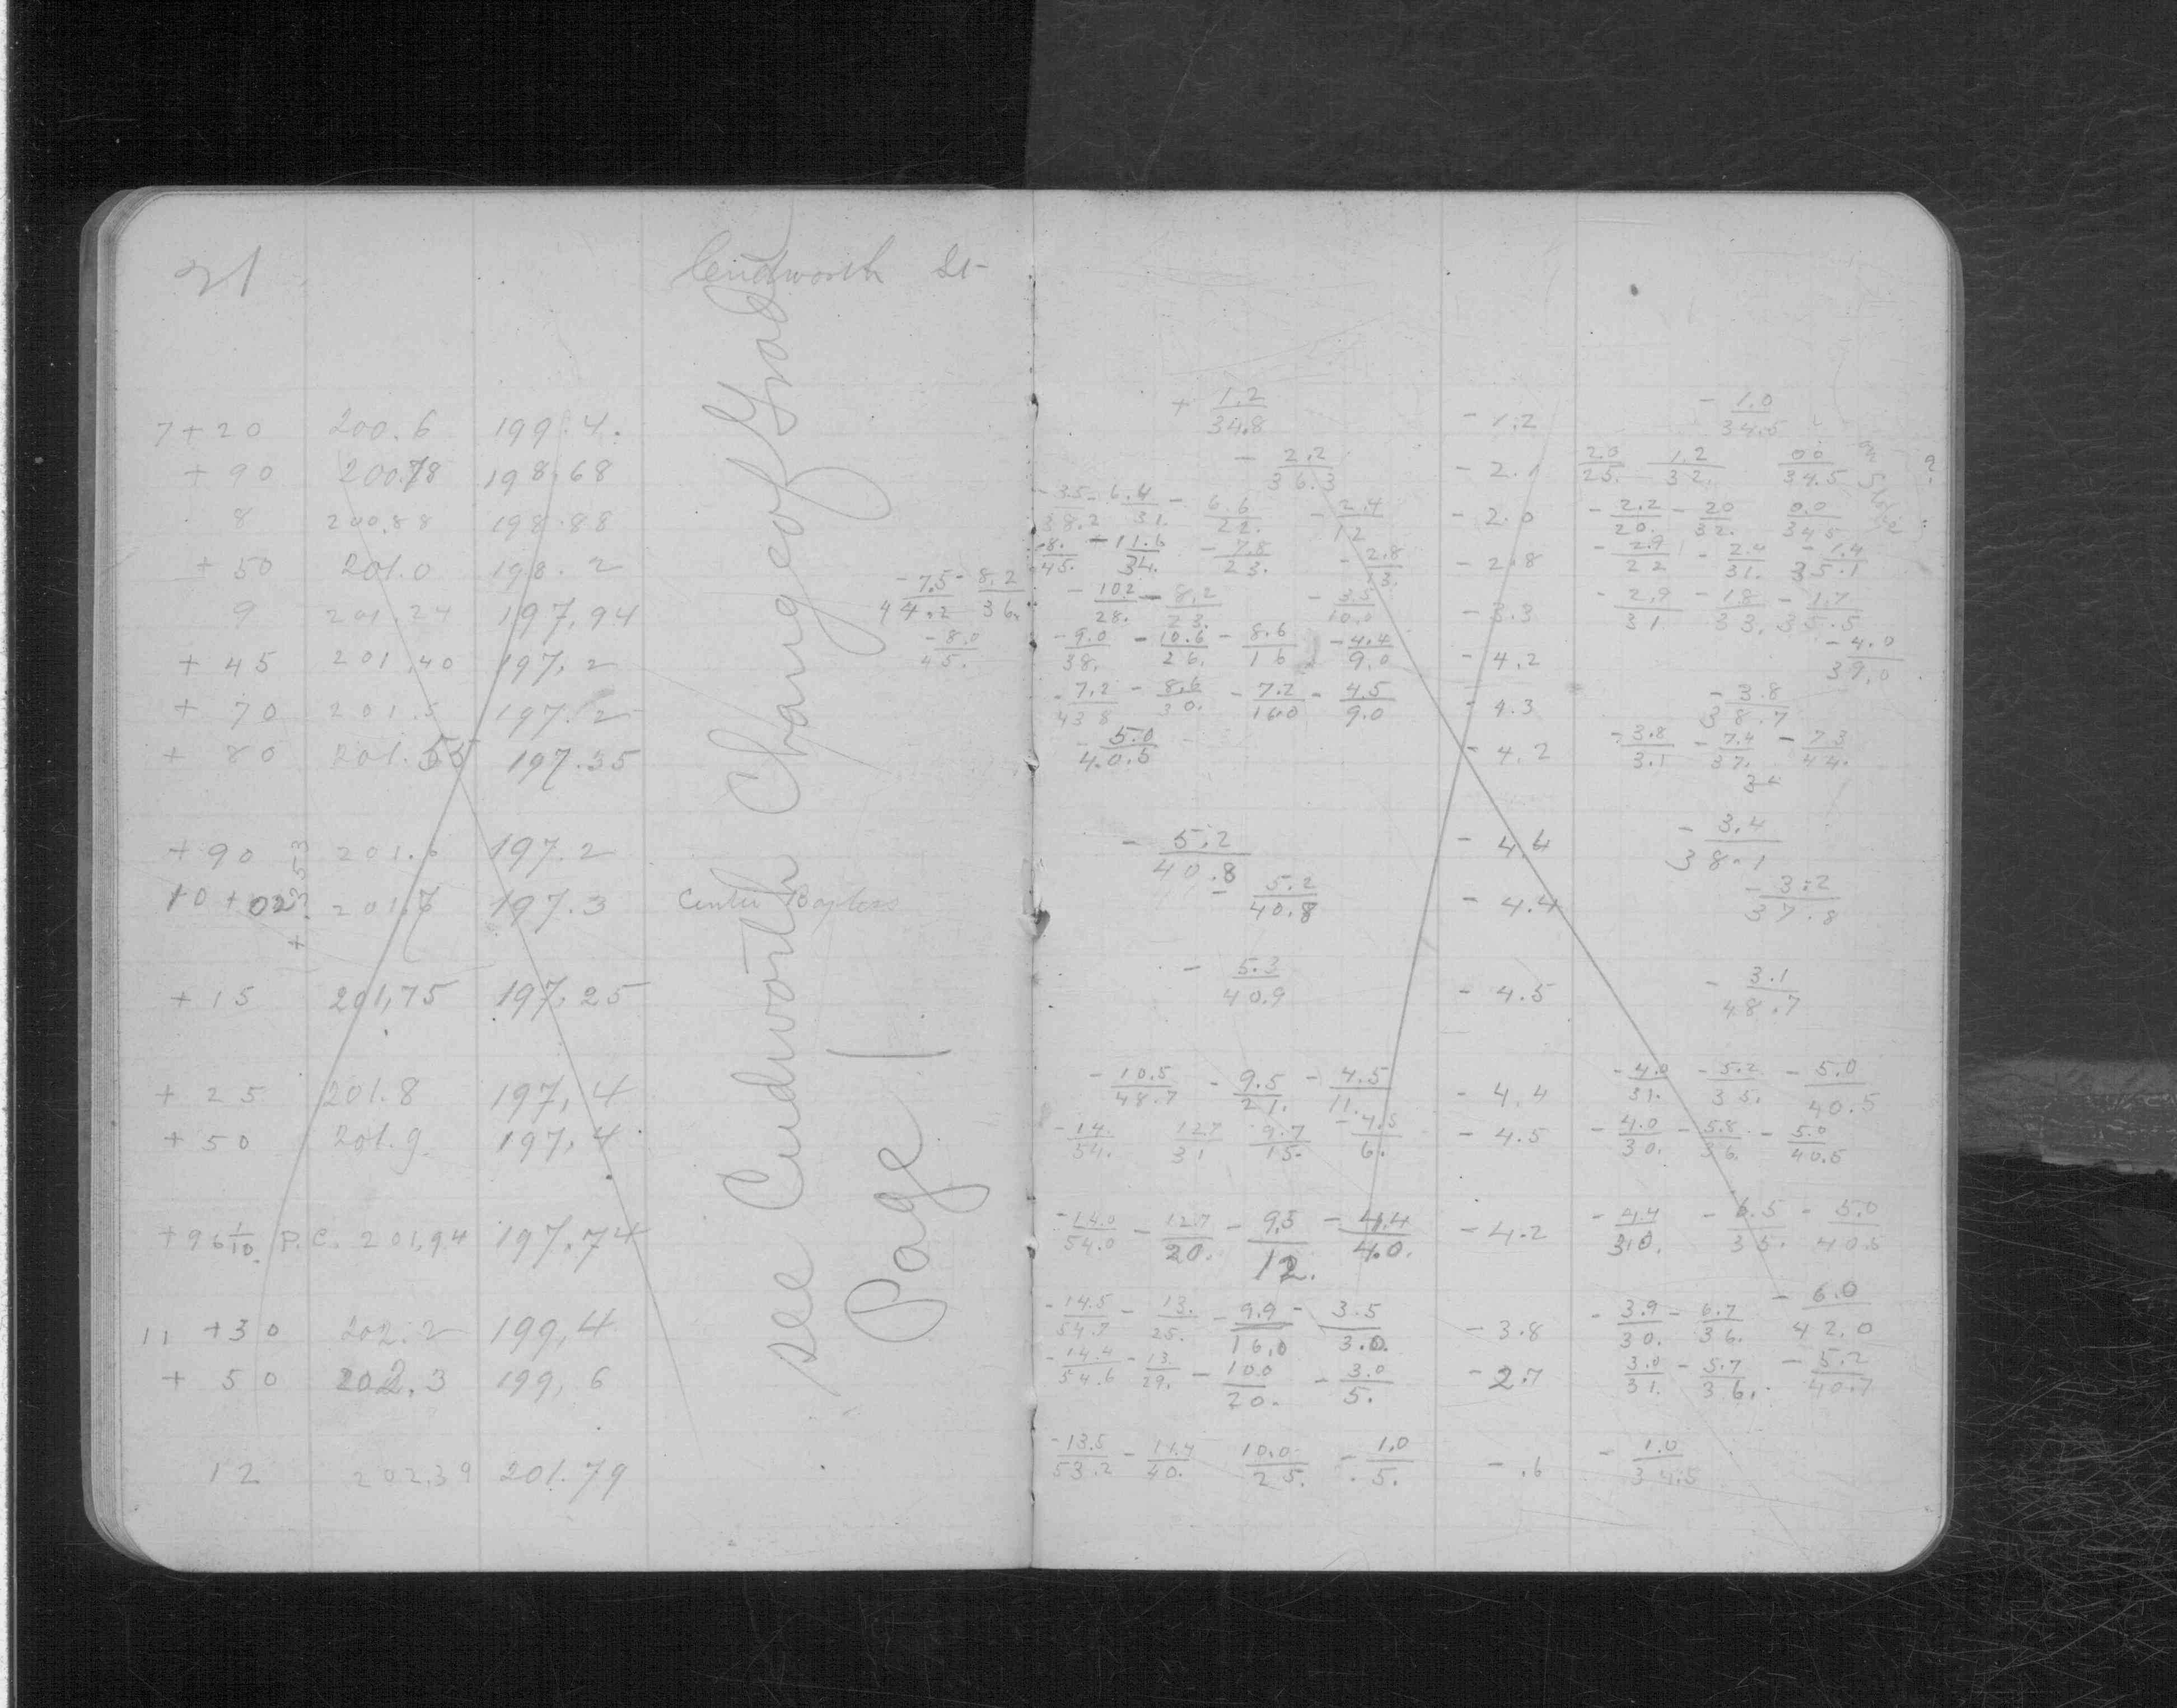 Cudworth St
7+20 200.6 199.4. + 1.2/34.8 - 1.2 - 1.0/34.5
+ 90 200.78 198.68 - 2.2/36.3 - 2.1 2.0/25. 1.2/32. 00/34.5 ?
8 200.88 198.88 - 3.5/38.2 - 6.4/31. - 6.6/22. - 2.4/12 - 2.0 - 2.2/20. - 20/32. 0.0/34.5
+ 50 201.0 198.2 - 8./45. - 11.6/34. - 7.8/23. - 2.8/13. - 2.8 - 2.9/22 - 2.4/31. - 1.4/35.1
9 201.24 197.94 - 7.5/44.2 - 8.2/36. - 10.2/28. - 8.2/23. - 3.5/10.0 - 3.3 - 2.9/31 - 1.8/33. - 1.7/35.5
+ 45 201.40 197.2 - 8.0/45. - 9.0/38. - 10.6/26. - 8.6/16 - 4.4/9.0 - 4.2 - 4.0/39.0
+ 70 201.5 197.2 - 7.2/43.8 - 8.6/30. - 7.2/16.0 - 4.5/9.0 - 4.3 - 3.8/38.7
+ 80 201.55 197.35 - 5.0/40.5 - 4.2 - 3.8/31 - 7.4/37. - 7.3/44.
34
+ 90 201.6 197.2 - 5.2/40.8 - 4.4 - 3.4/38.1
10 + 02 201.7 197.3 Center - 5.2/40.8 - 4.4 - 3.2/37.8
+ 15 201.75 197.25 - 5.3/40.9 - 4.5 - 3.1/48.7
+ 25 201.8 197.4 - 10.5/48.7 - 9.5/21. - 4.5/11. - 4.4 - 4.0/31. - 5.2/35. - 5.0/40.5
+ 50 201.9 197.4 - 14./54. 12.7/31 9.7/15. - 4.5/6. - 4.5 - 4.0/30. - 5.8/36. - 5.0/40.5
+ 96 1/10 P.C. 201.94 197.74 - 14.0/54.0 - 12.7/20. - 9.5/12. - 4.4/4.0. - 4.2 - 4.4/31.0. - 6.5/35. - 5.0/40.5
11 + 30 202.2 199.4 - 14.5/54.7 - 13./25. - 9.9/16.0 - 3.5/3.0. - 3.8 - 3.9/30. - 6.7/36. - 6.0/42.0
+ 50 202.3 199.6 - 14.4/54.6 - 13./29. - 10.0/20. - 3.0/5. - 2.7 3.0/31. - 5.7/36. - 5.2/40.7
12 202.39 201.79 - 13.5/53.2 - 11.4/40. 10.0/25. - 1.0/5. - .6 - 1.0/34.5
see Cudworth Change of Grade
Page 1